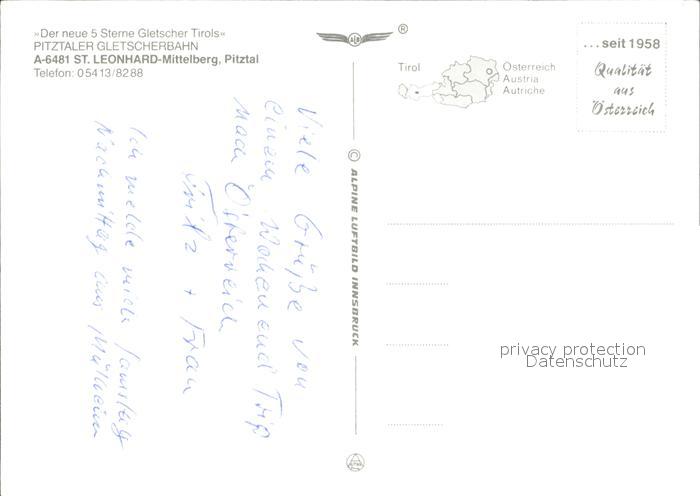 »Der neue 5 Sterne Gletscher Tirols«
PITZTALER GLETSCHERBAHN
A-6481 ST. LEONHARD-Mittelberg, Pitztal
Telefon: 05413/8288
Viele Grüße von
einem Wochenend Trip
nach Österreich
+ Frau
Ich melde mich Samstag
Nachmittag aus Mülheim
© ALPINE LUFTBILD INNSBRUCK
®
Tirol
Österreich
Austria
Autriche
...seit 1958
Qualität
aus
Österreich
privacy protection
Datenschutz